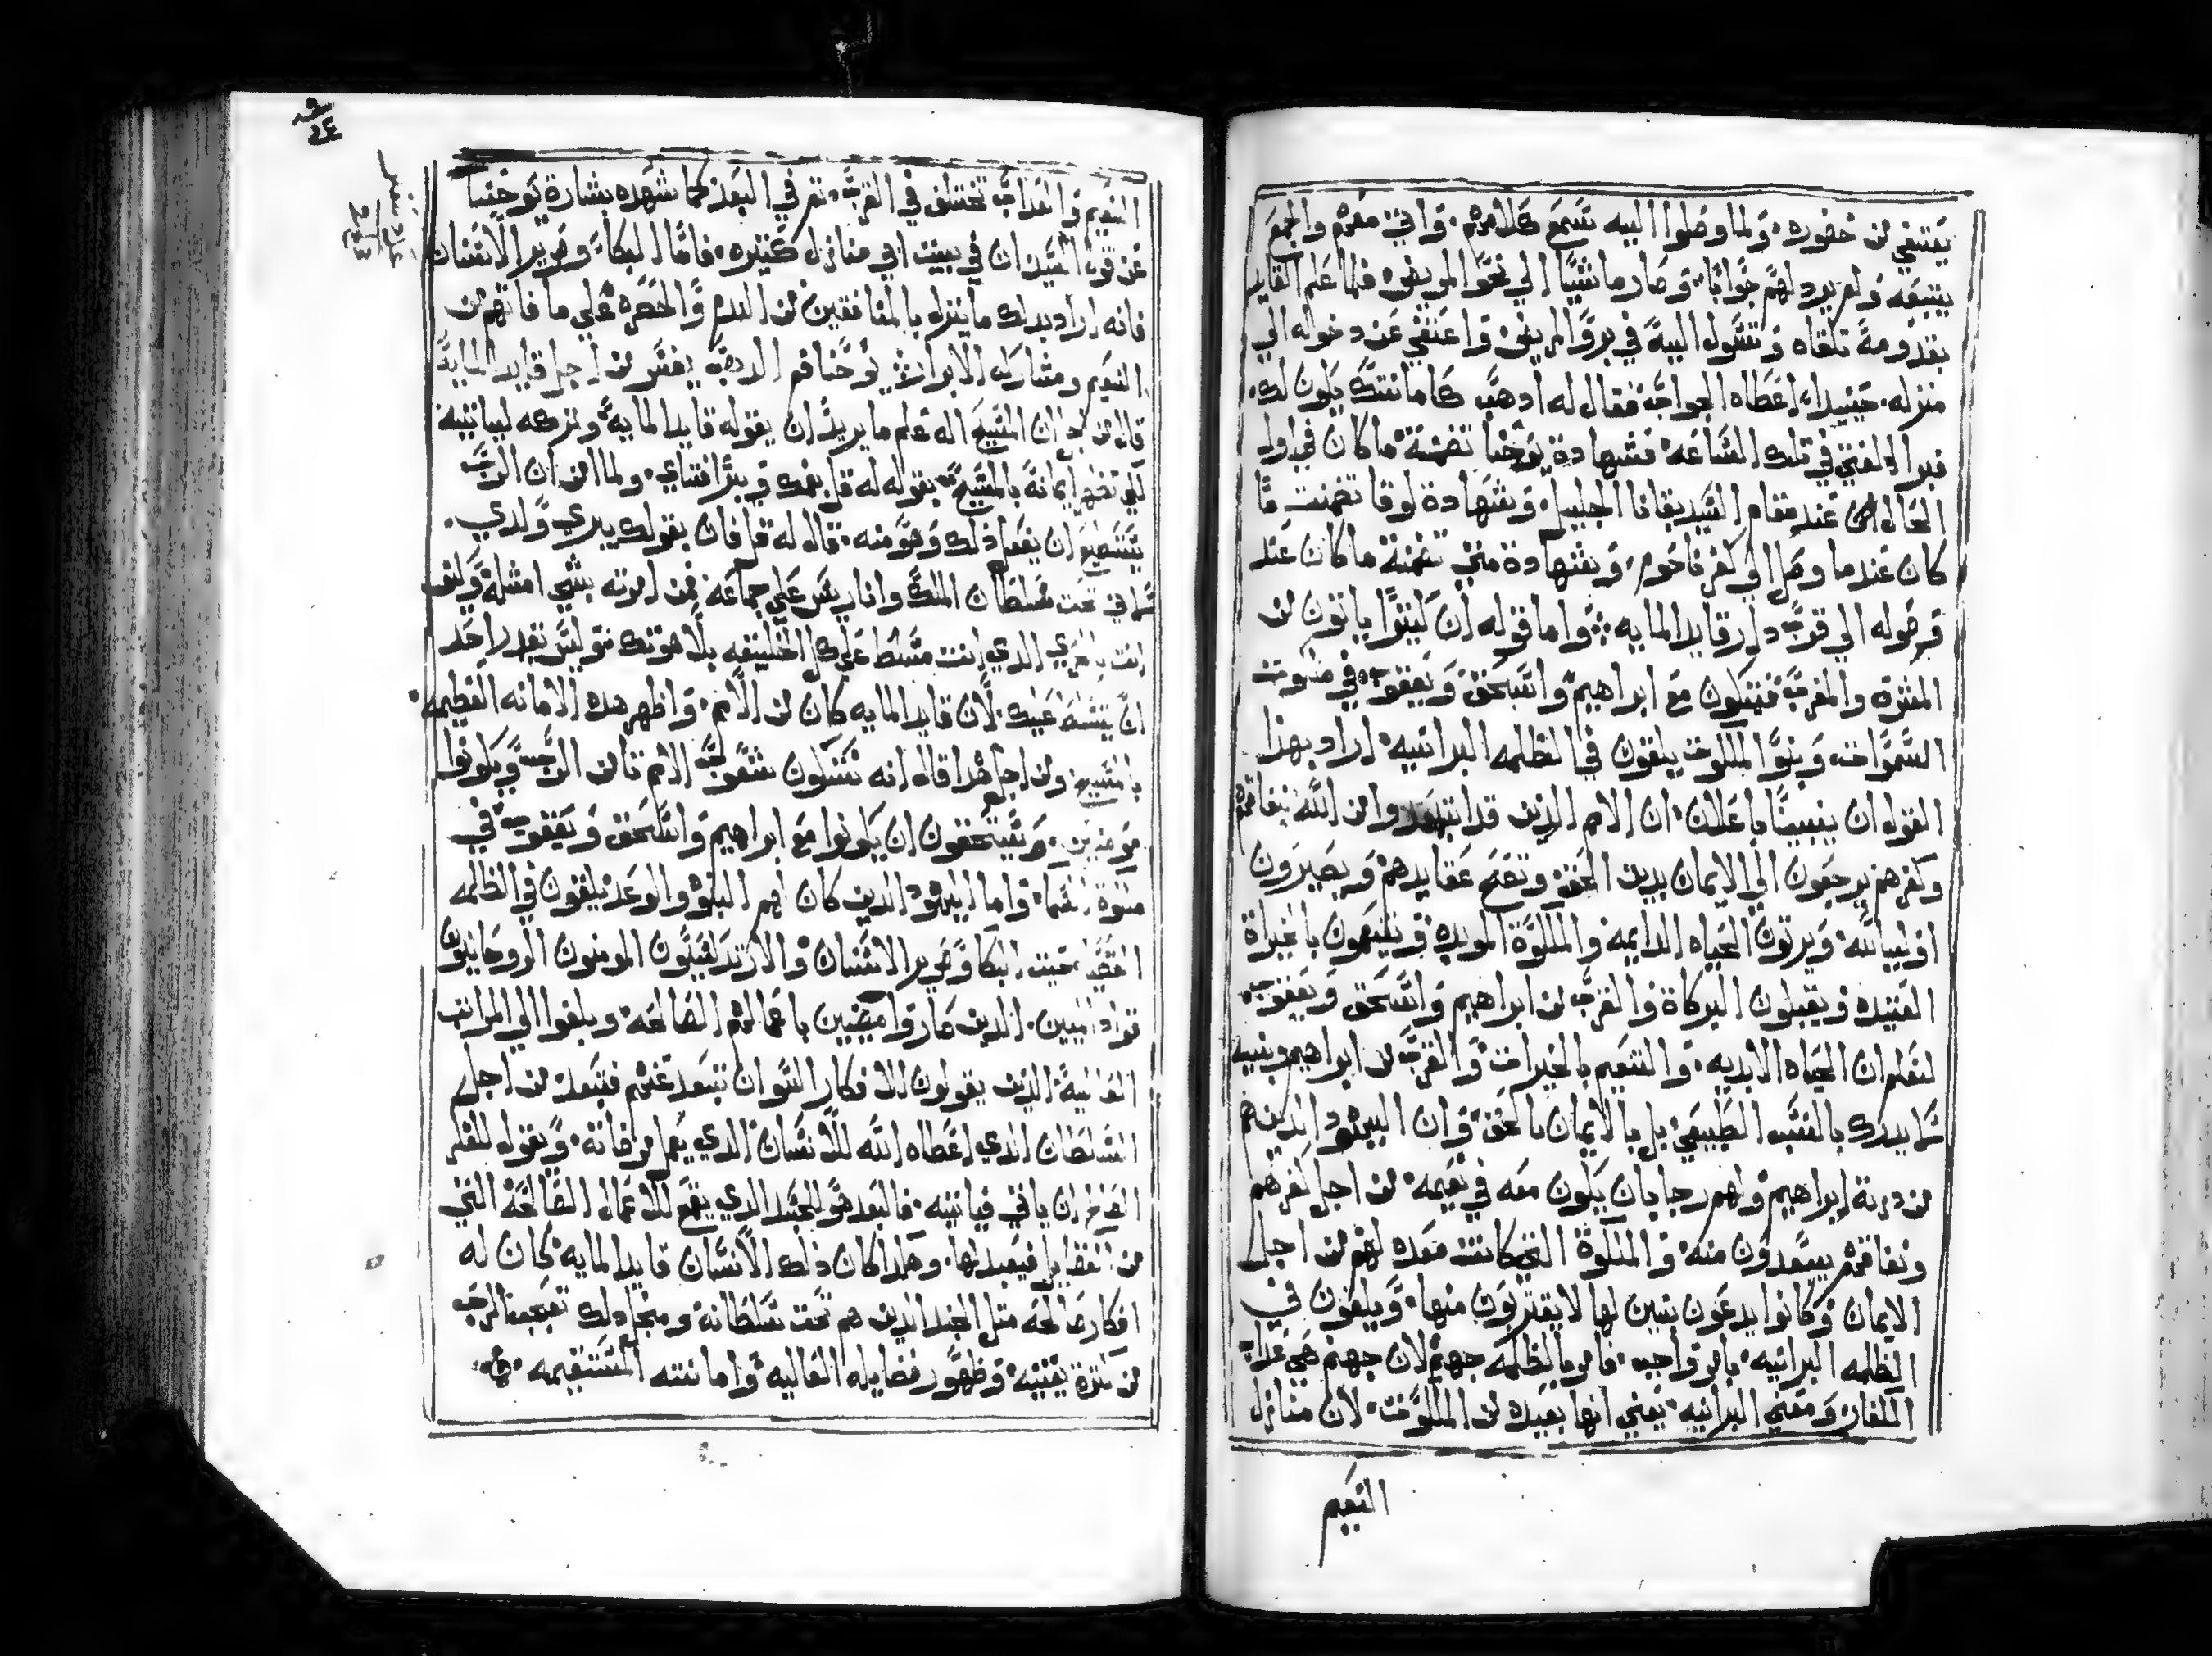 يعتفي من حضوره. ولما وصلوا اليه تسمع كلامهم. واتي معهم والجمع
يتبعه ولم يرد لهم جوابا. وصار ماشيا الي نحو المريض فلما علم القايد
بقدومه تلقاه وتسوله اليه في برو المريض واعتفي عن دخوله الي
منزله. حينيد اعطاه الجواب فقال له ادهب كامانتك يكون لك.
فبرا الفتي في تلك الساعه. فشهادة يوحنا تضمنة ما كان في اول
الحال عند مقام السيد بقانا الجليل. وشهادة لوقا تضمنت ما
كان عندما وصل الي كفرناحوم. وبشهادة متي تضمنة ما كان عند
وصوله الي قرب دار قايد المايه. واما قوله ان كثيرا ياتون من
المشرق والمغرب فيتكون مع ابراهيم واسحق ويعقوب في ملكوت
السموات. وبنو الملكوت يلقون في الظلمه البرانيه. اراد بهذا
القول ان يبين باعلان ان الامم الذين قد ابتعدوا من الله بنفاقهم
وكفرهم يرجعون الي الايمان بدين الحق وتصح عقايدهم ويصيرون
اوليا لله. ويرتون الحياه الدايمه والملكوة الموبده ويتنعمون بالخيراة
العتيده ويقبلون البركاة والقرب من ابراهيم واسحق ويعقوب.
لنعلم ان الحياه الابديه. والتنعيم بالخيرات والقرب من ابراهيم وبنيه
لا يدرك بالنسب الطبيعي بل بالايمان بالحق. وان اليهود الذين هم
من درية ابراهيم ولهم رجا بان يكون معه في نعيمه. من اجل كفرهم
ونفاقهم يبعدون منه. والملكوة التي كانت معده لهم من اجل
الايمان وكانوا يدعون بنين لها لا يقتربون منها. ويلقون في
الظلمه البرانيه. بامر واجب. فاما الظلمه جهنم لان جهنم هي عذاب
الكفار. ومعني البرانيه. يعني انها بعيده من الملكوت. لان منازل
النعيم
النعيم والعذاب تختلف في القرب. تم في البعد كما شهده بشارة يوحنا
عن قول السيد ان في بيت ابي منازل كثيره. فاما البكا وصرير الاسنان
فانه اراد بدلك ما ينزل بالمنافقين من الندم والحصره علي ما فاتهم من
النعيم ومشاركه الابرار يوحنا فم الدهب يفسر من اجل قايد المايه
قال من اجل ان المسيح اله علم ما يريد ان يقوله قايد المايه وتركه ليباتيه
لكي تظهر ايمانه بالمسيح بقوله له قل بفمك ويبرا فتاي. ولما امن ان الرب
يستطيع ان يفعل ذلك وحو منه. قال له قل فان بقولك يبري ولدي.
لاني تحت سلطان الملك وانا ريس علي جماعه فمن امرته بشي امتثله وكيف
انت يا سيدي الذي انت متسلط علي كل الخليقه بلاهوتك متي ليس يقدر احد
ان يتسلط عليك. لان قايد المايه كان من الامم. واظهر هده الامانه العظيمه.
بالمسيح ومن اجل هدا قال انه ستكون شعوب الامم تامن بالرب ويكونوا
مومنين. ويستحقون ان يكونوا مع ابراهيم واسحق ويعقوب في
ملكوة السما. واما اليهود الذين كان لهم البنوه والوعد يلقون في الظلمه
القصيا حيت البكا وصرير الاسنان والارتدكسيون المومنون الروحانيون
قواد المييين. الذين صاروا مضيين باعمالهم الصالحه. وبلغوا الي المراتب
العاليه الذين يقولون للافكار السو ان تبعد عنهم فتبعد من اجل
السلطان الذي اعطاه الله للانسان الذي يعمل مرضاته. ويقول للفكر
الصالح ان ياتي فياتيه. فالعبد هو الجسد الذي يقع للاعمال الصالحة التي
من الفضايل فيعبد لها. وهدا كان ذلك الانسان قايد المايه. كان له
افكار صالحه متل الجند الذين هم تحت سلطانه ومن اجل دلك تعجب الرب
من كترة يقينه. وظهور فضايله العاليه وامانته المستقيمه.